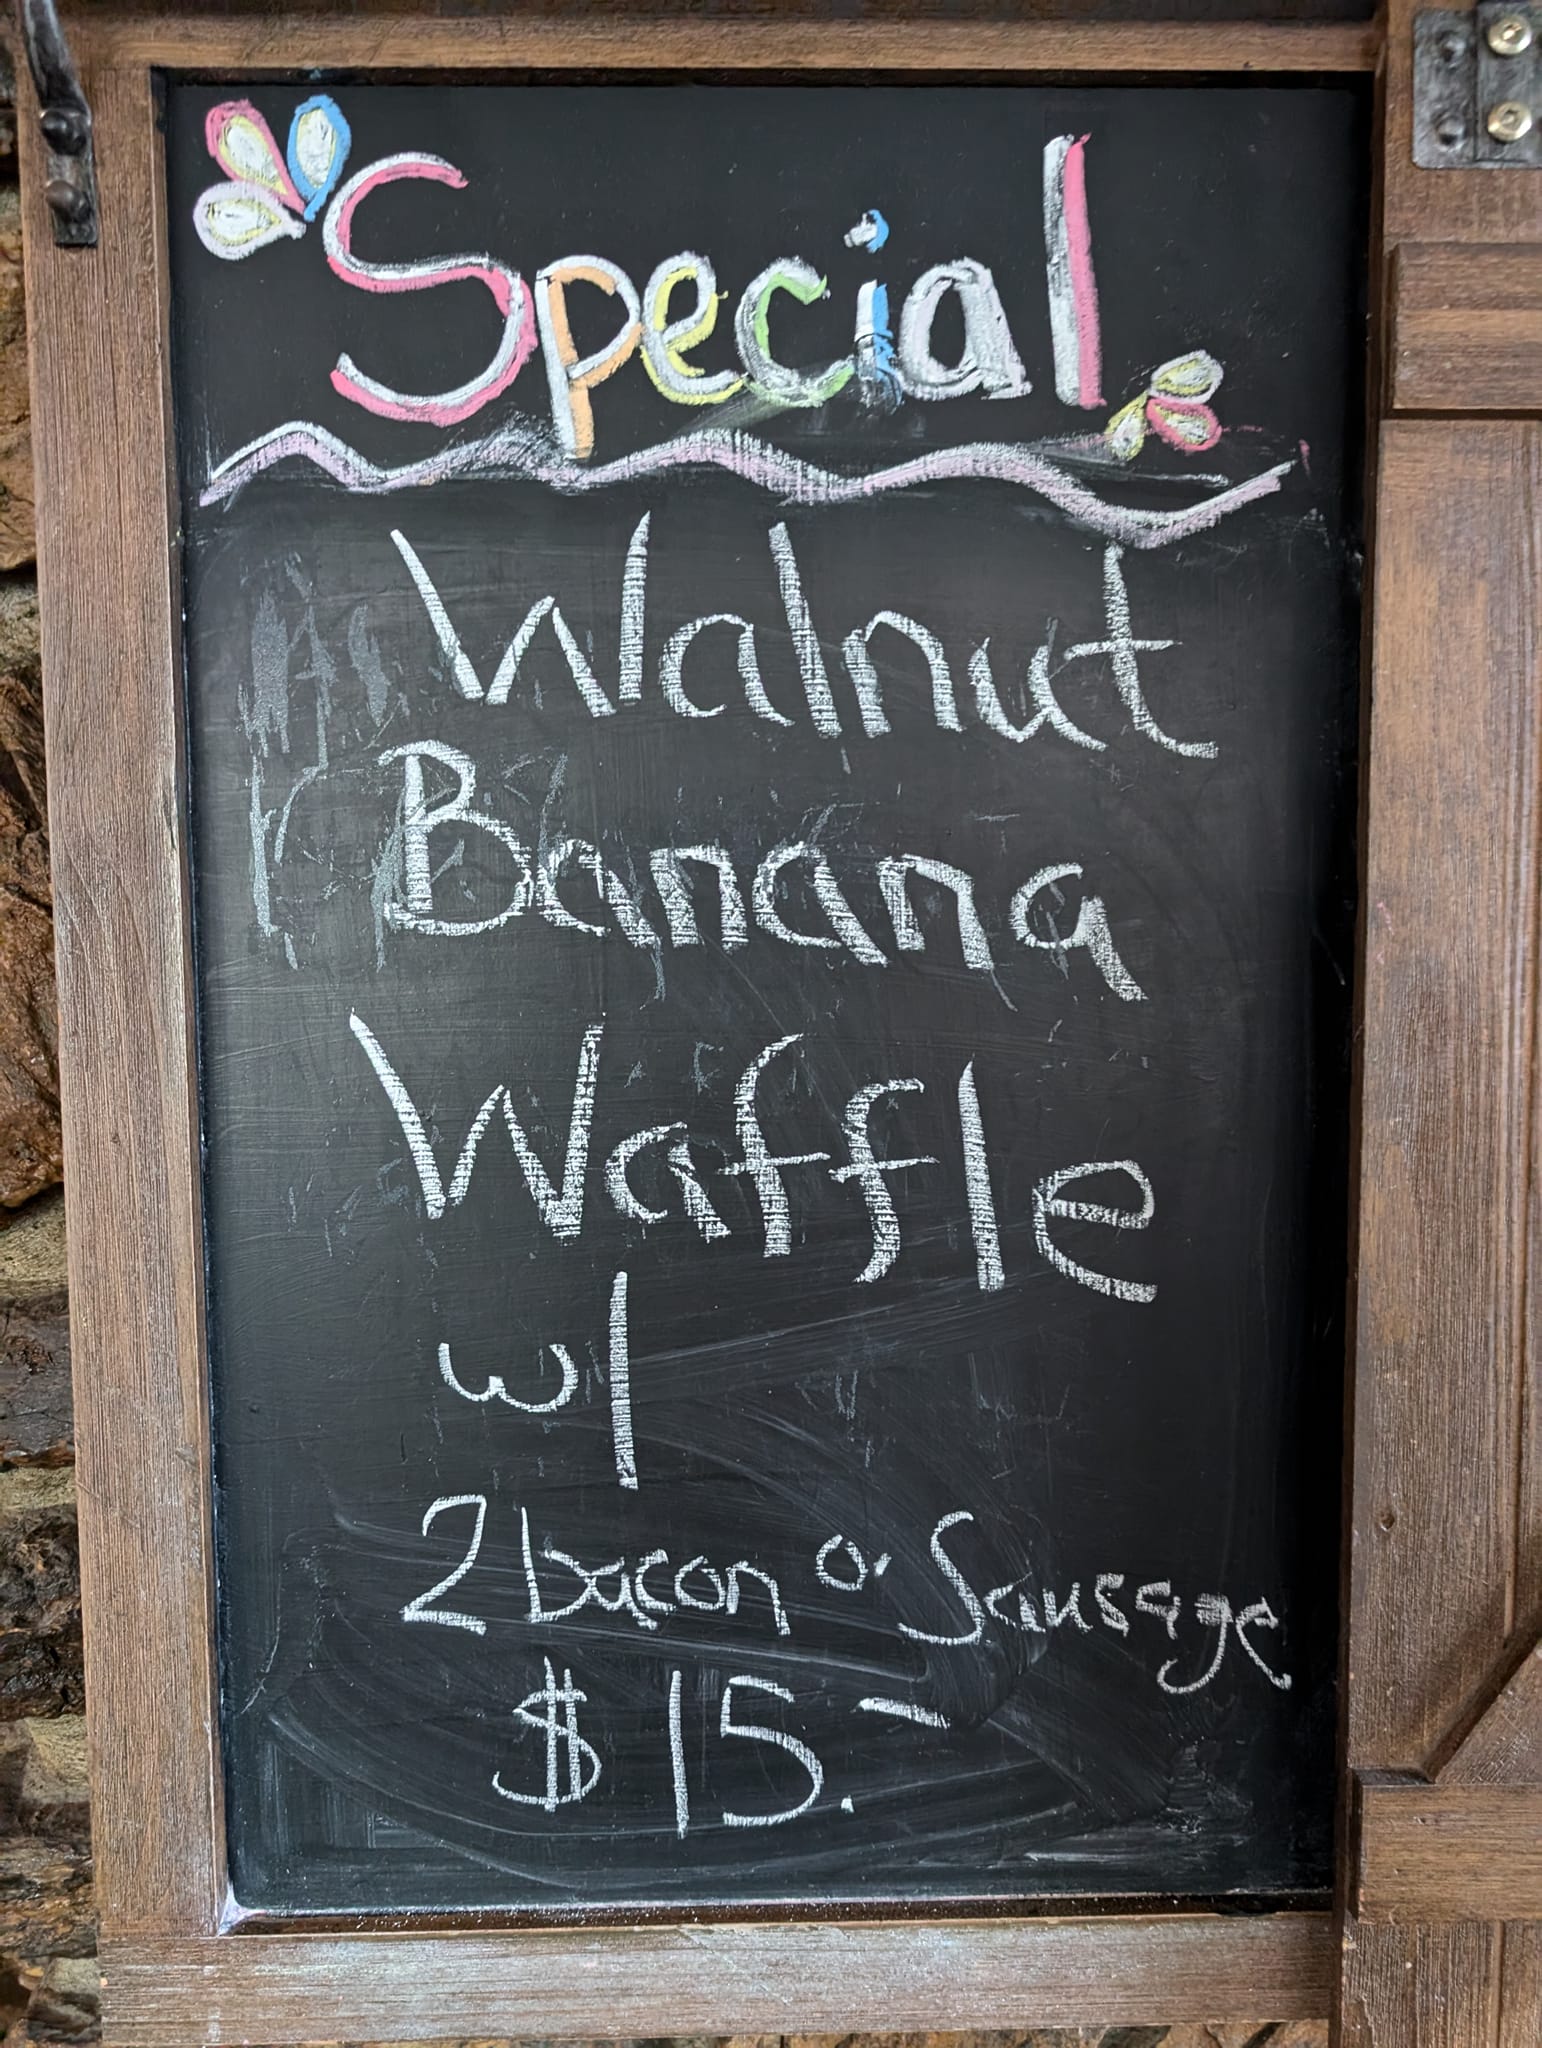 Special
Walnut
Banana
Waffle
w/
2 bacon or Sausage
$15.-